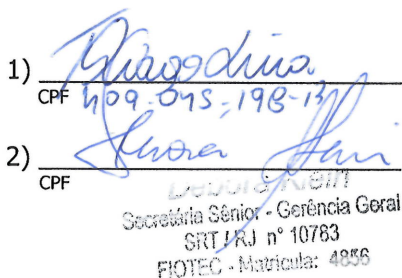 1) Thiago Lima
CPF 409-045-198-13
2)
CPF
Debora Klein
Secretária Sênior - Gerência Geral
SRT / RJ nº 10763
FIOTEC - Matricula: 4856